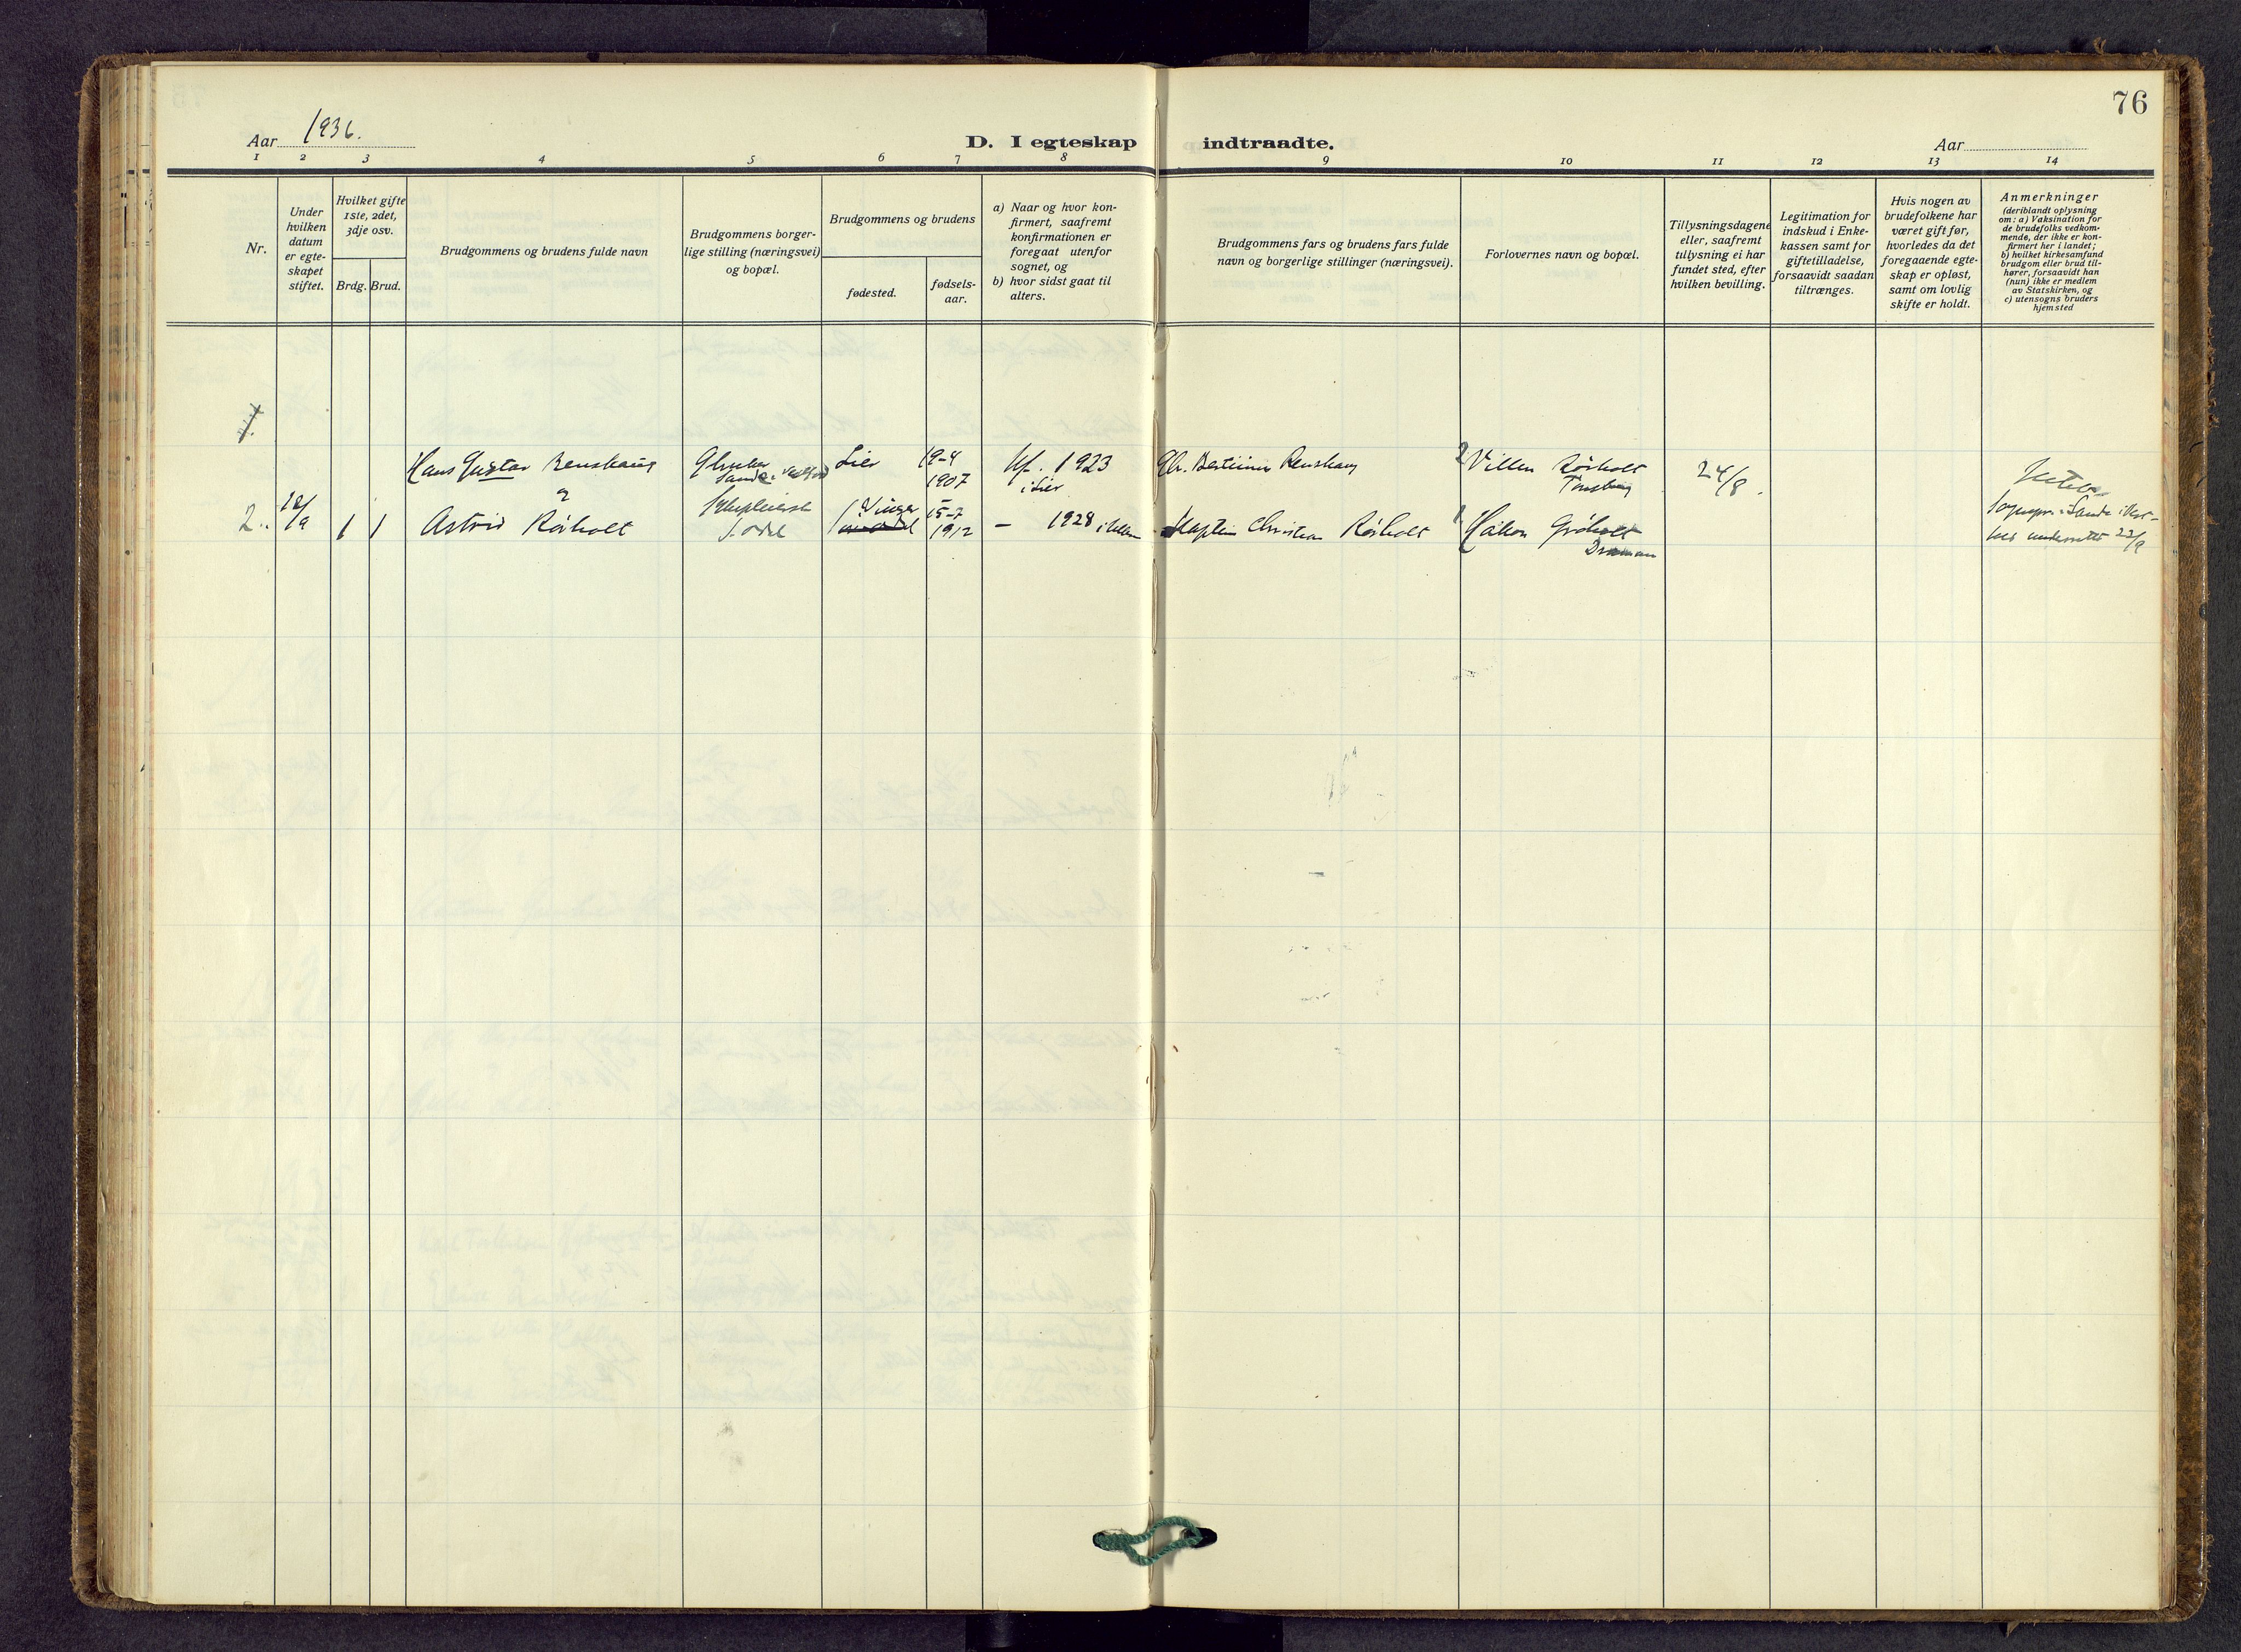 76
Aar 1936.
D. I egteskap indtraadte.
Aar
1 2 3 4 5 6 7 8 9 10 11 12 13 14
Nr.
Under
hvilken
datum
er egte-
skapet
stiftet.
Hvilket gifte
1ste, 2det,
3dje osv.
Brdg. Brud.
Brudgommens og brudens fulde navn
Brudgommens borger-
lige stilling (næringsvei)
og bopæl.
Brudgommens og brudens
fødested.
fødsels-
aar.
a) Naar og hvor kon-
firmert, saafremt
konfirmationen er
foregaat utenfor
sognet, og
b) hvor sidst gaat til
alters.
Brudgommens fars og brudens fars fulde
navn og borgerlige stillinger (næringsvei).
Forlovernes navn og bopæl.
Tillysningsdagene
eller, saafremt
tillysning ei har
fundet sted, efter
hvilken bevilling.
Legitimation for
indskud i Enke-
kassen samt for
giftetilladelse,
forsaavidt saadan
tiltrænges.
Hvis nogen av
brudefolkene har
været gift før,
hvorledes da det
foregaaende egte-
skap er opløst,
samt om lovlig
skifte er holdt.
Anmerkninger
(deriblandt oplysning
om: a) Vaksination for
de brudefolks vedkom-
mende, der ikke er kon-
firmert her i landet;
b) hvilket kirkesamfund
brudgom eller brud til-
hører, forsaavidt han
(hun) ikke er medlem
av Statskirken, og
c) utensogns bruders
hjemsted
1.
Hans Gustav Renskaug
Gbruker
Sande i Vestfold
Lier
19-4
1907
kf. 1923
i Lier
Renskaug
2 Villem Rørholt
Tønsberg
24/8.
2. 12/9 1 1
Astrid Rørholt
S. Odal
Vinger
15-7
1912
- 1928
Kaptein Christian Rørholt
1 Håkon
Dramman
Sognepr. i Sande i Vest-
underrettet 23/9